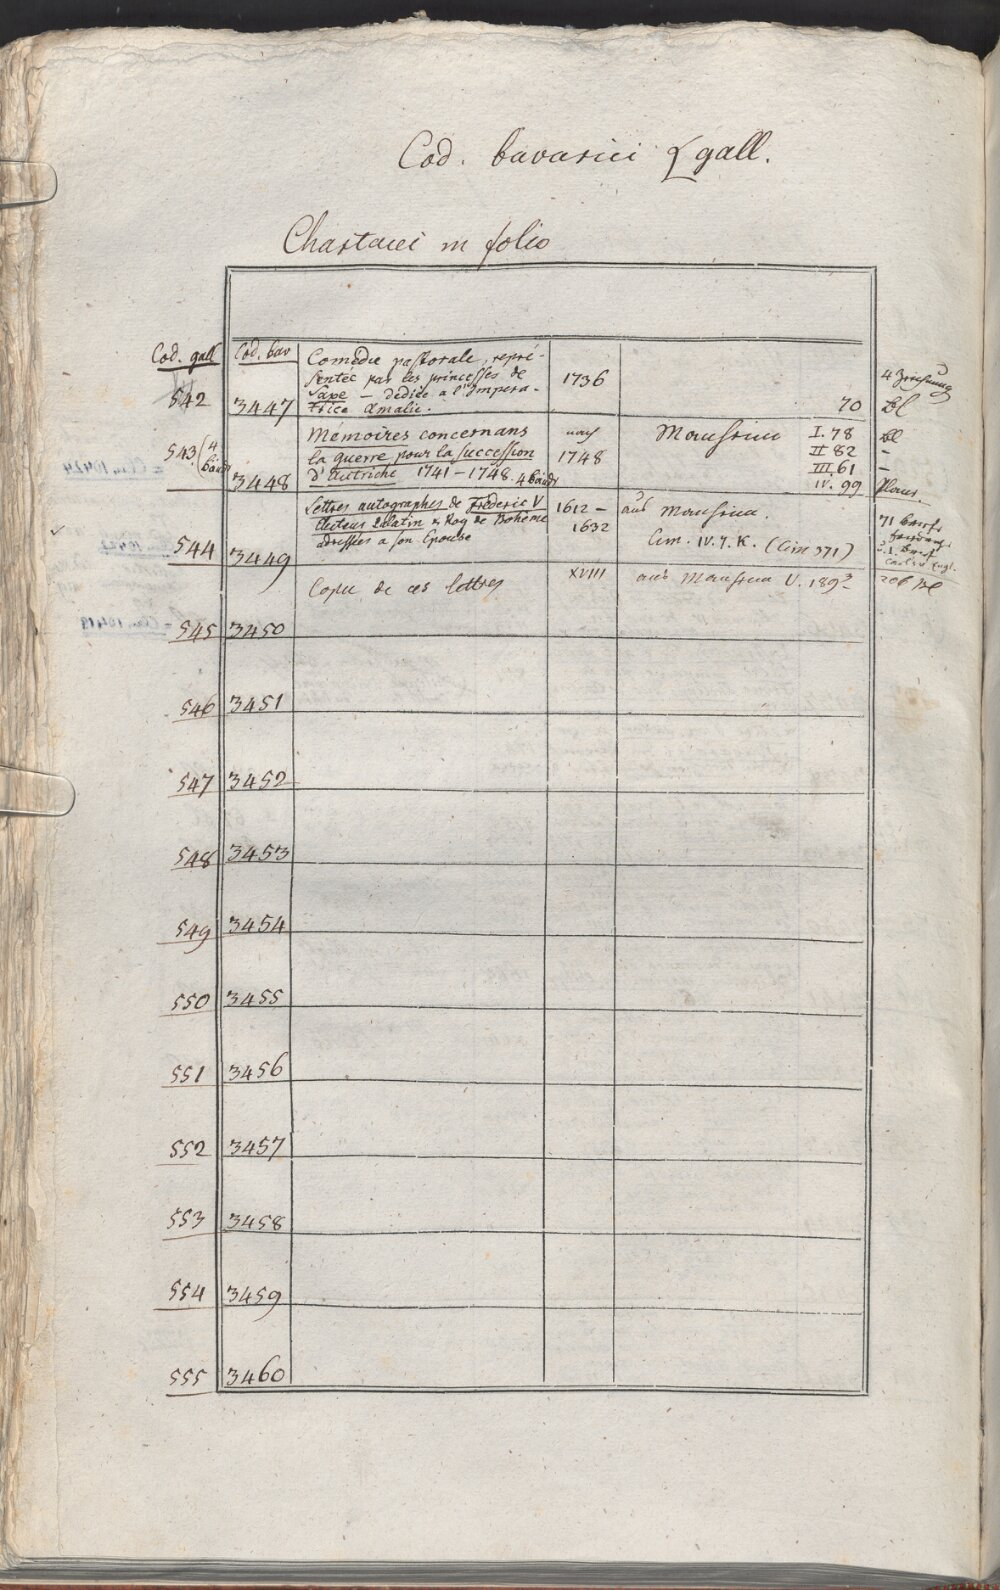 Cod. bavarici & gall.
Chartacei in folio
Cod. gall Cod. bav
542 3447 Comédie pastorale, repré-
sentée par les princesses de
Saxe — dédiée a l'Impera-
trice Amalie. 1736 70 4 Zeichnung Bl
543 (4 Bände 3448 Mémoires concernans
la guerre pour la succession
d'Autriche 1741–1748. 4 Bände
nach 1748
I. 78 Bl
II 82 –
III. 61 –
IV. 99 Plans.
544 3449 Lettres autographes de Fréderic V
Electeur Palatin & Roy de Boheme
adressées a son Epouse
1612 –
1632
aus
Cim. IV. 7. K. (Cim 371)
71
545 3450 Copie de ces lettres XVIII aus 206 Bl
546 3451
547 3452
548 3453
549 3454
550 3455
551 3456
552 3457
553 3458
554 3459
555 3460